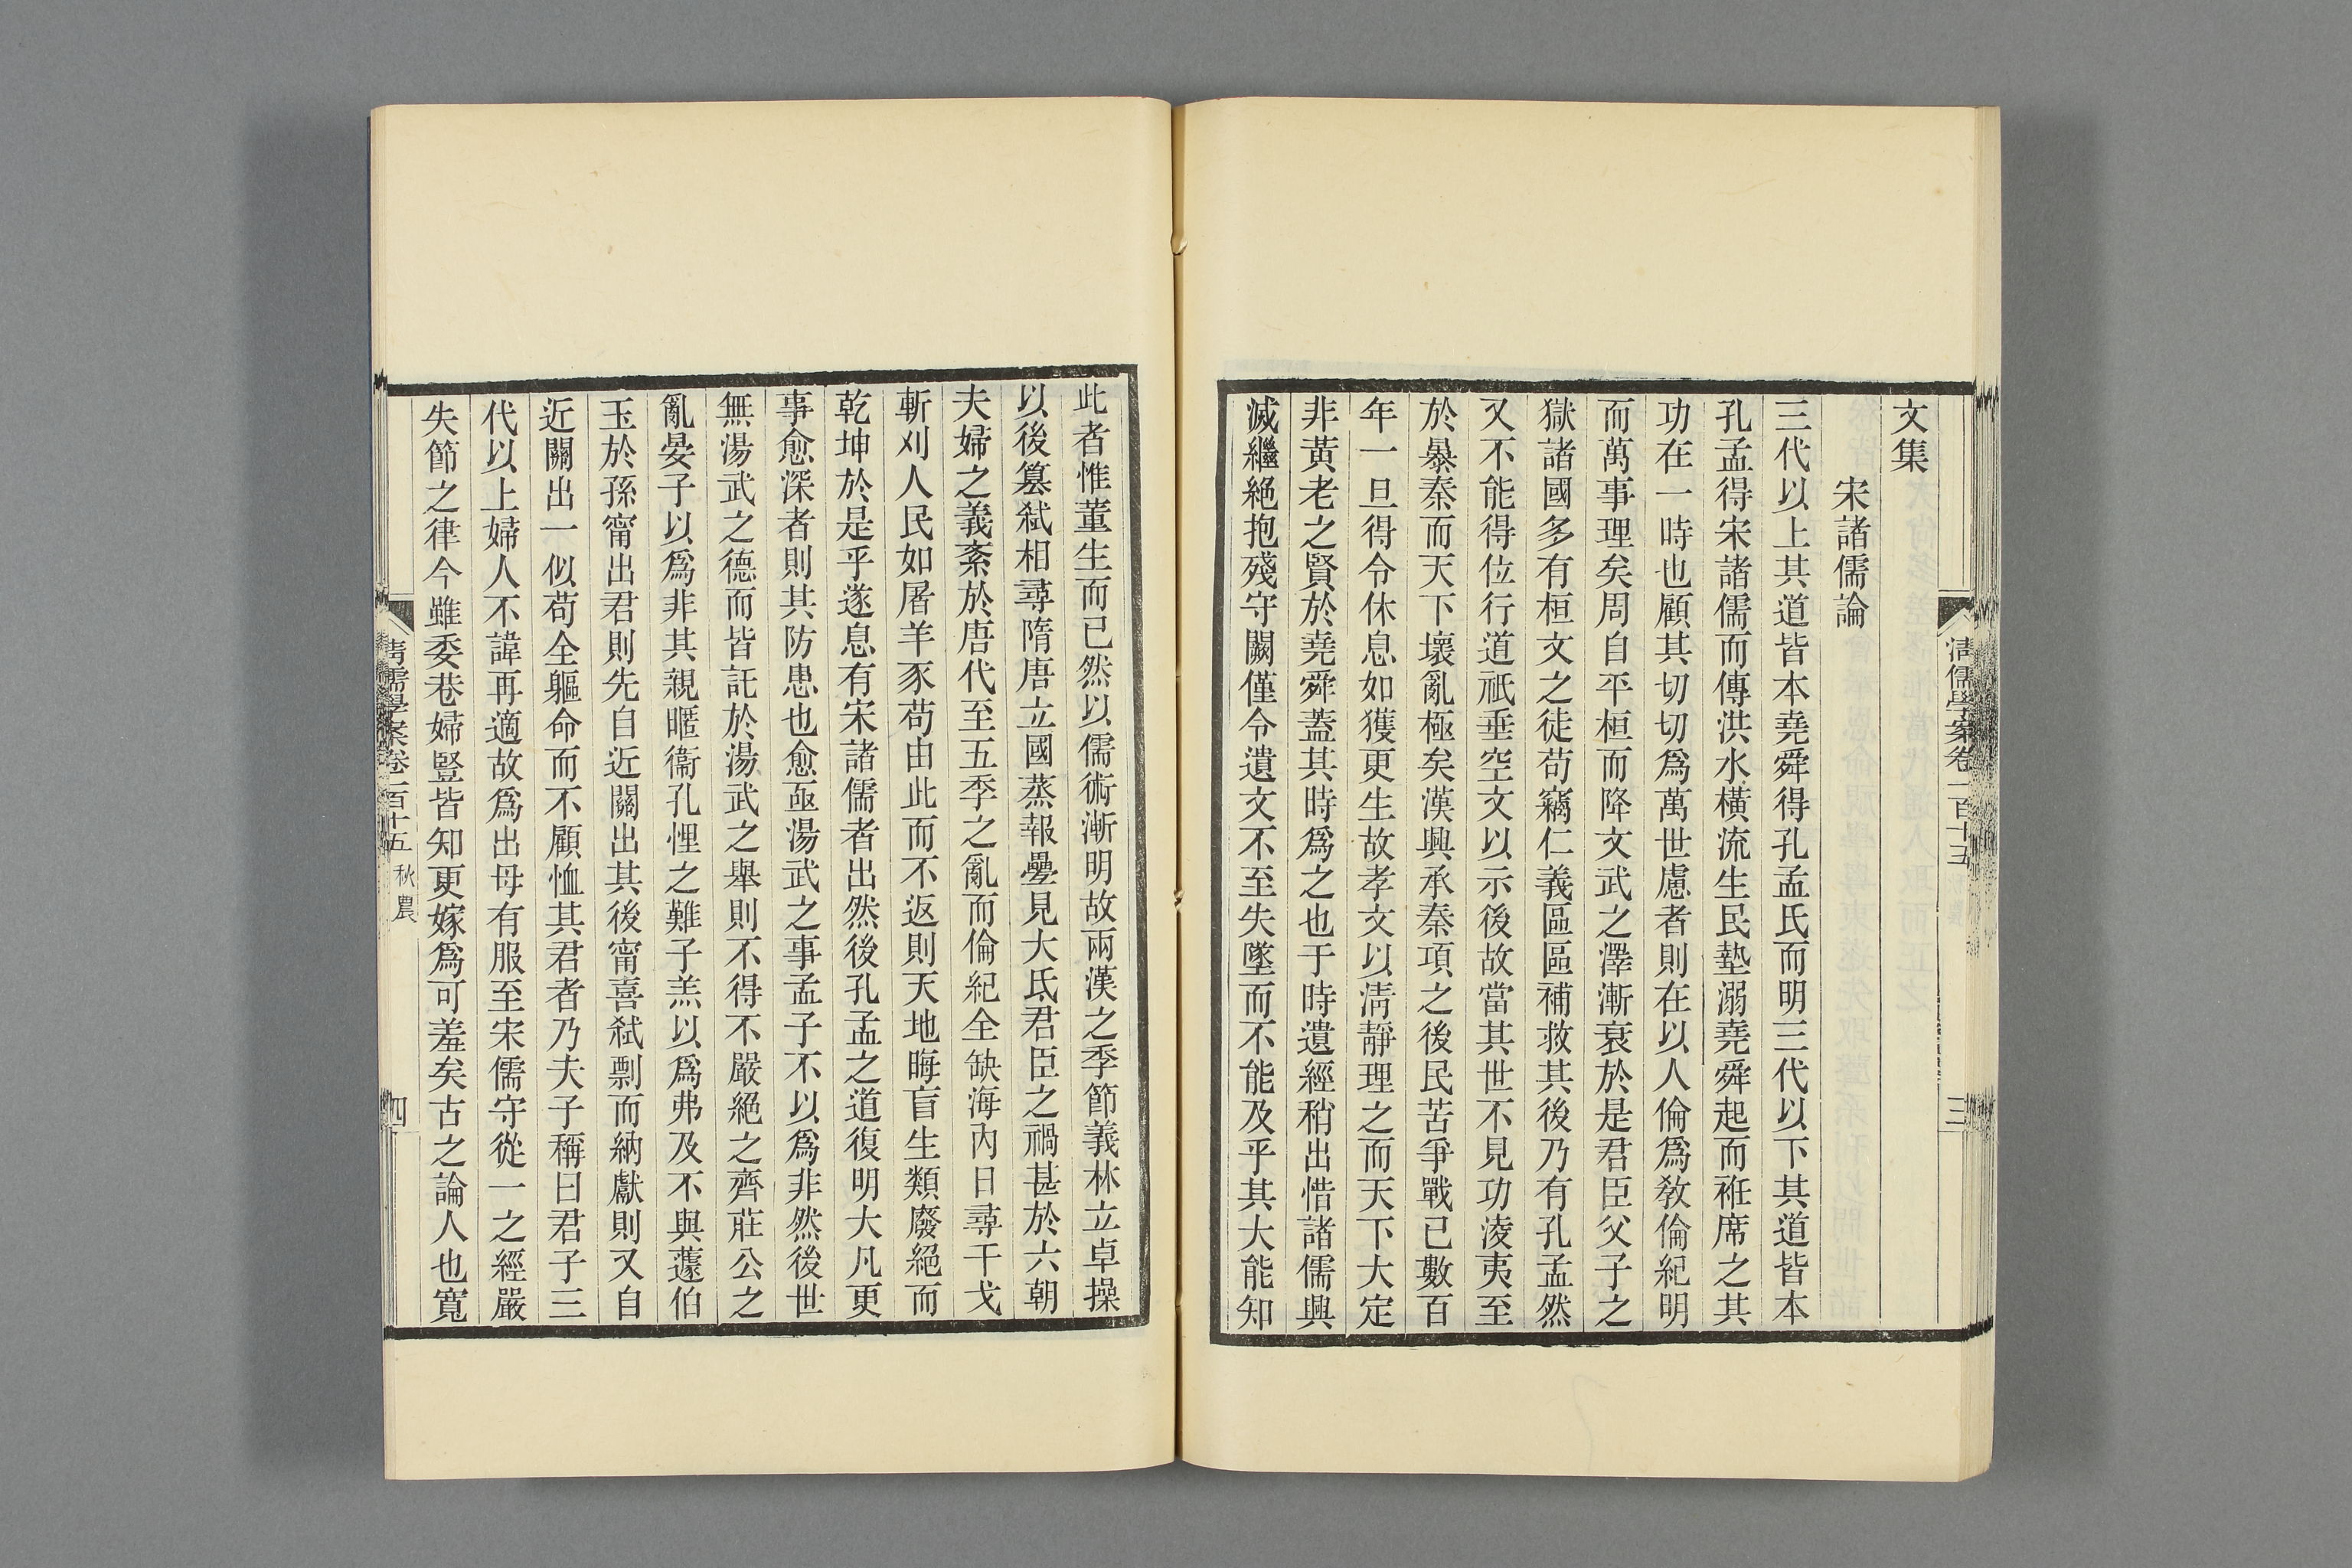 清儒學案卷一百十五
三
文集
宋諸儒論
三代以上其道皆本堯舜得孔孟氏而明三代以下其道皆本
孔孟得宋諸儒而傳洪水橫流生民墊溺堯舜起而袵席之其
功在一時也顧其切切爲萬世慮者則在以人倫爲敎倫紀明
而萬事理矣周自平桓而降文武之澤漸衰於是君臣父子之
獄諸國多有桓文之徒苟竊仁義區區補救其後乃有孔孟然
又不能得位行道祇垂空文以示後故當其世不見功淩夷至
於暴秦而天下壞亂極矣漢興承秦項之後民苦爭戰已數百
年一旦得令休息如獲更生故孝文以淸靜理之而天下大定
非黃老之賢於堯舜蓋其時爲之也于時遺經稍出惜諸儒興
滅繼絕抱殘守闕僅令遺文不至失墜而不能及乎其大能知
此者惟董生而已然以儒術漸明故兩漢之季節義林立卓操
以後篡弑相尋隋唐立國蒸報疊見大氐君臣之禍甚於六朝
夫婦之義紊於唐代至五季之亂而倫紀全缺海內日尋干戈
斬刈人民如屠羊豕苟由此而不返則天地晦盲生類廢絕而
乾坤於是乎遂息有宋諸儒者出然後孔孟之道復明大凡更
事愈深者則其防患也愈亟湯武之事孟子不以爲非然後世
無湯武之德而皆託於湯武之舉則不得不嚴絕之齊莊公之
亂晏子以爲非其親暱衞孔悝之難子羔以爲弗及不與蘧伯
玉於孫甯出君則先自近關出其後甯喜弑剽而納獻則又自
近關出一似苟全軀命而不顧恤其君者乃夫子稱曰君子三
代以上婦人不諱再適故爲出母有服至宋儒守從一之經嚴
失節之律今雖委巷婦豎皆知更嫁爲可羞矣古之論人也寬
清儒學案卷一百十五 秋農
四